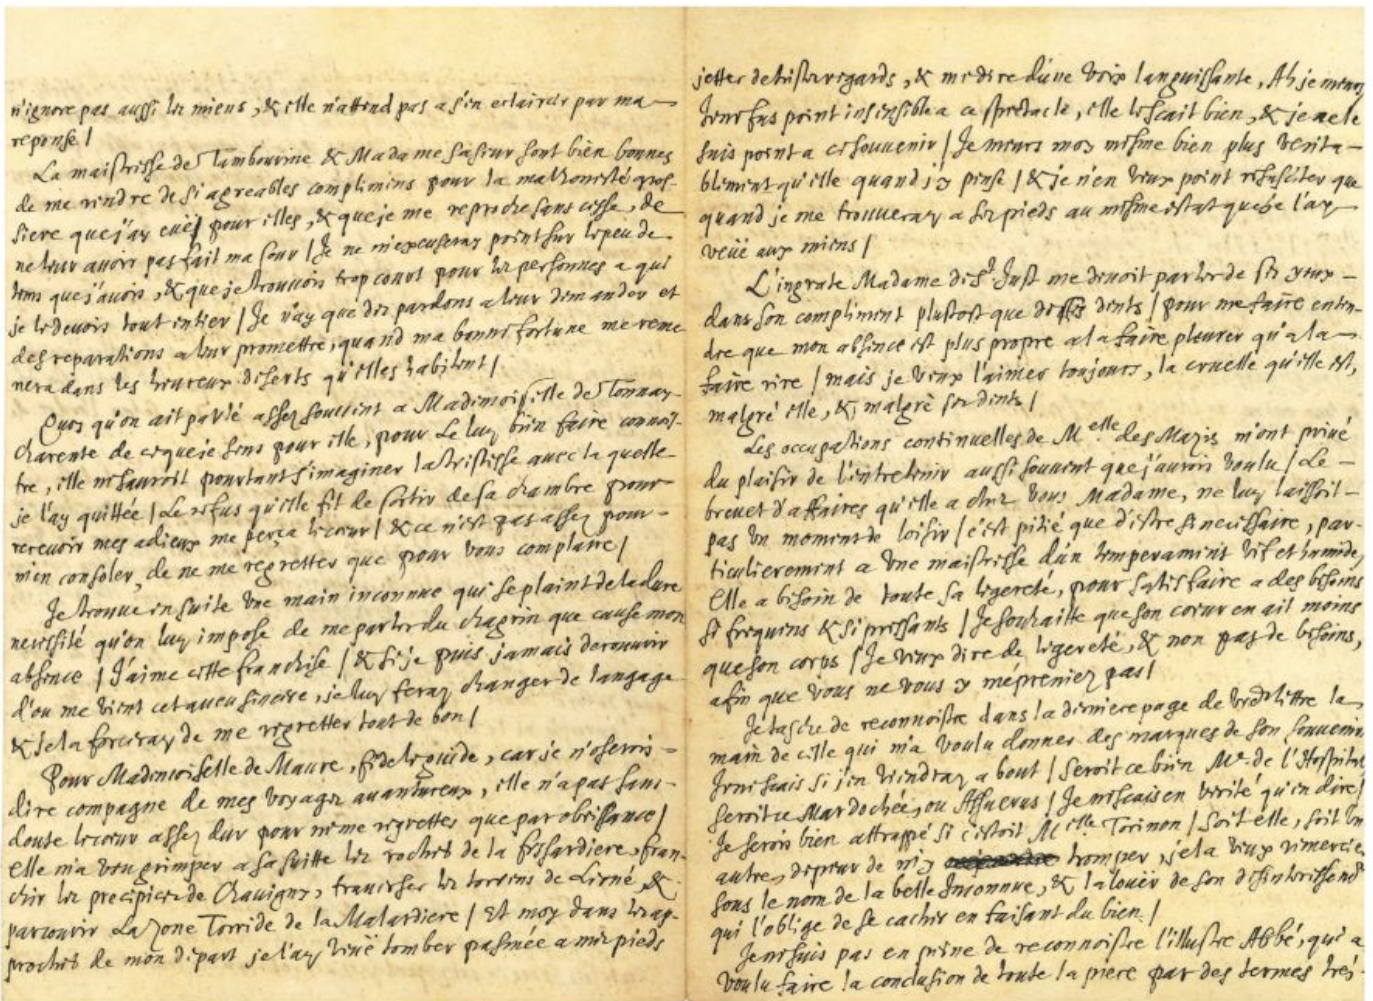 n'ignore pas aussi les miens, & elle n'attend pas a s'en eclaircir par ma
reponse /
La maistresse de Tambourine & Madame sa sœur sont bien bonnes
de me rendre de si agreables complimens pour la malhonesteté gros-
siere que j'ay euë pour elles, & que je me reproche sans cesse, de
ne leur avoir pas fait ma cour / Je ne m'excuseray point sur le peu de
tems que j'avois, & que je trouvois trop court pour les personnes a qui
je le devois tout entier / Je n'ay que des pardons a leur demander et
des reparations a leur promettre, quand ma bonne fortune me reme
nera dans les heureux deserts qu'elles habitent /
Quoy qu'on ait parlé assez souvent a Mademoiselle de Tonnay-
charente de ce que je sens pour elle, pour Le luy bien faire connois-
tre, elle ne sauroit pourtant s'imaginer la tristesse avec la quelle
je l'ay quittée / Le refus qu'elle fit de sortir de sa chambre pour
recevoir mes adieux me perça le cœur / & ce n'est pas assez pour
m'en consoler, de ne me regretter que pour vous complaire /
Je trouve en suite une main inconnue qui se plaint de la dure
necessité qu'on luy impose de me parler du chagrin que cause mon
absence / J'aime cette franchise / & si je puis jamais decouvrir
d'ou me vient cet aveu sincere, je luy feray changer de langage
& je la forceray de me regretter tout de bon /
Pour Mademoiselle de Maure, fidele guide, car je n'oserois
dire compagne de mes voyages avantureux, elle n'a pas sans
doute le cœur assez dur pour ne me regretter que par obeissance /
elle m'a veu grimper a sa suitte les rochers de la fresardiere, fran-
chir les precipices de Chauigny, traverser les torrens de Lerné, &
parcourir La Zone Torride de la Malardiere / Et moy dans les ap-
proches de mon depart je l'ay veuë tomber pasmée a mes pieds
jetter de tristes regards, & me dire d'une voix languissante, Ah je meurs
Je ne fus point insensible a ce spectacle, elle le scait bien, & je ne le
suis point a ce souvenir / Je meurs moy mesme bien plus verita-
blement qu'elle quand j'y pense / & je n'en veux point resusciter que
quand je me trouveray a ses pieds au mesme estat que je l'ay
veuë aux miens /
L'ingrate Madame de St. Just me devoit parler de ses yeux
dans son compliment plustost que de ses dents / pour me faire enten-
dre que mon absence est plus propre a la faire pleurer qu'a la
faire rire / mais je veux l'aimer toujours, la cruelle qu'elle est,
malgré elle, & malgré ses dents /
Les occupations continuelles de Melle des Mazis m'ont privé
du plaisir de l'entretenir aussi souvent que j'aurois voulu / Le
brevet d'affaires qu'elle a chez vous Madame, ne luy laissoit
pas un moment de loisir / c'est pitié que d'estre si necessaire, par-
ticulierement a une maistresse d'un temperament vif et humide,
Elle a besoin de toute sa legereté, pour satisfaire a des besoins
si frequens & si pressants / Je souhaitte que son cœur en ait moins
que son corps / Je veux dire de legereté, & non pas de besoins,
afin que vous ne vous y mépreniez pas /
Je tasche de reconnoistre dans la derniere page de lettre la
main de celle qui m'a voulu donner des marques de son souvenir,
Je ne scais si j'en viendray a bout / Seroit ce bien Mr. de l'Hospital
seroit ce Mardochée, ou Assuerus / Je ne scais en verité qu'en dire /
Je serois bien attrappé si c'estoit Melle Torinon / Soit elle, soit un
autre, de peur de m'y tromper, je la veux remercier
sous le nom de la belle Inconnue, & la louër de son
qui l'oblige de se cacher en faisant du bien /
Je ne suis pas en peine de reconnoistre l'illustre Abbé, qui a
voulu faire la conclusion de toute la piece par des termes tres-